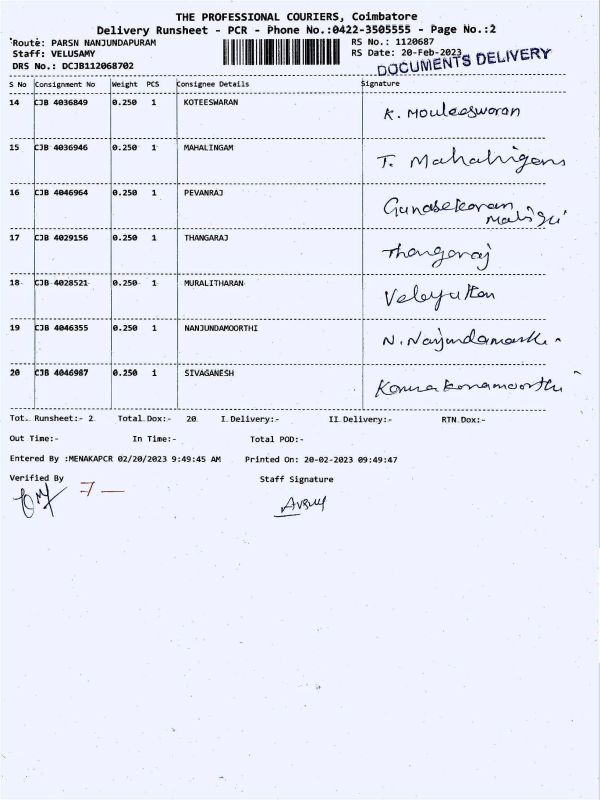 THE PROFESSIONAL COURIERS, Coimbatore
Delivery Runsheet - PCR - Phone No.:0422-3505555 - Page No.:2
Route: PARSN NANJUNDAPURAM RS No.: 1120687
Staff: VELUSAMY RS Date: 20-Feb-2023
DRS No.: DCJB112068702 DOCUMENTS DELIVERY
S No Consignment No Weight PCS Consignee Details Signature
14 CJB 4036849 0.250 1 KOTEESWARAN K. Mouleeswaran
15 CJB 4036946 0.250 1 MAHALINGAM T. Mahalingam
16 CJB 4046964 0.250 1 PEVANRAJ Gunasekaran
17 CJB 4029156 0.250 1 THANGARAJ Thangaraj
18 CJB 4028521 0.250 1 MURALITHARAN
19 CJB 4046355 0.250 1 NANJUNDAMOORTHI N.
20 CJB 4046987 0.250 1 SIVAGANESH
Tot. Runsheet:- 2 Total Dox:- 20 I Delivery:- II Delivery:- RTN Dox:-
Out Time:- In Time:- Total POD:-
Entered By :MENAKAPCR 02/20/2023 9:49:45 AM Printed On: 20-02-2023 09:49:47
Verified By Staff Signature
7 —